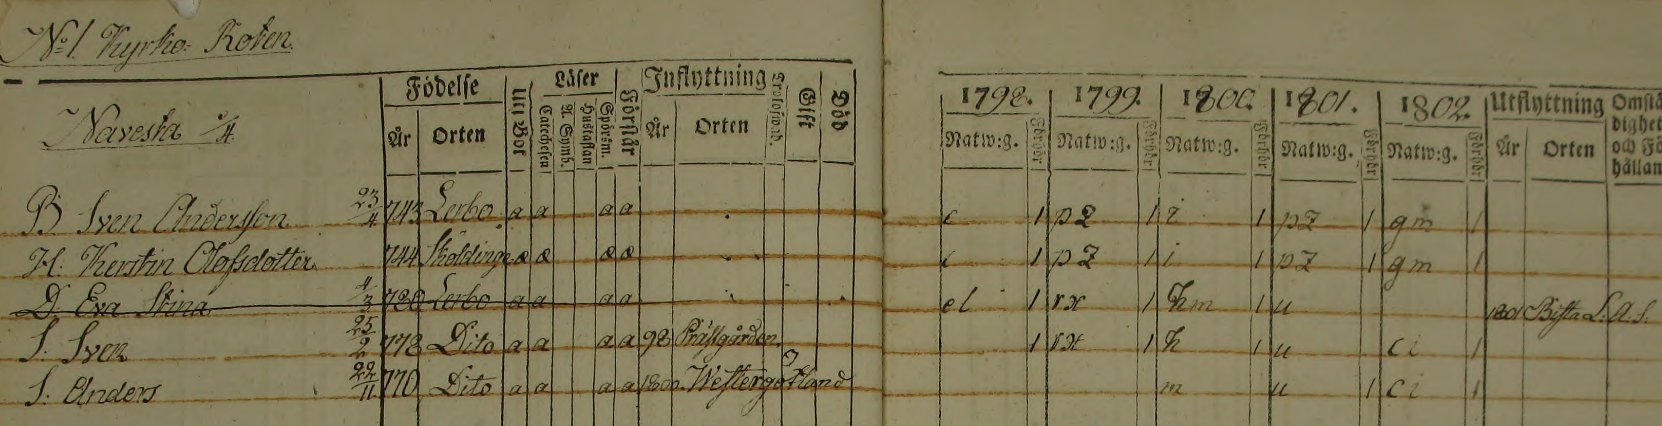 No 1. Kyrko-Roten.
Födelse Läser Inflyttning 1798. 1799. 1800. 1801. 1802. Utflyttning Omstä
Navesta 1/4 År Orten Uti Bok Catechesen A. Symb. Hustaflan Spörsm. Förstår År Orten Gift Död Natw:g. Förhör Natw:g. Förhör Natw:g. Förhör Natw:g. Förhör Natw:g. Förhör År Orten dighet och Fö hållan
B Sven Andersson 23/4 743 Lerbo a a a a c 1 p2 1 i 1 p2 1 gm 1
H. Kerstin Olofsdotter. 744 Sköldinge a a a a c 1 p2 1 i 1 p2 1 gm 1
D. Eva Stina 4/3 780 Lerbo a a a a el 1 rx 1 hm 1 u 1801 Bista L. A. S.
S. Sven 25/2 778 Dito a a a a 98 Prästgården 1 rx 1 h 1 u ci 1
S. Anders 22/11 770 Dito a a a a 1800 Westergötland m u 1 ci 1